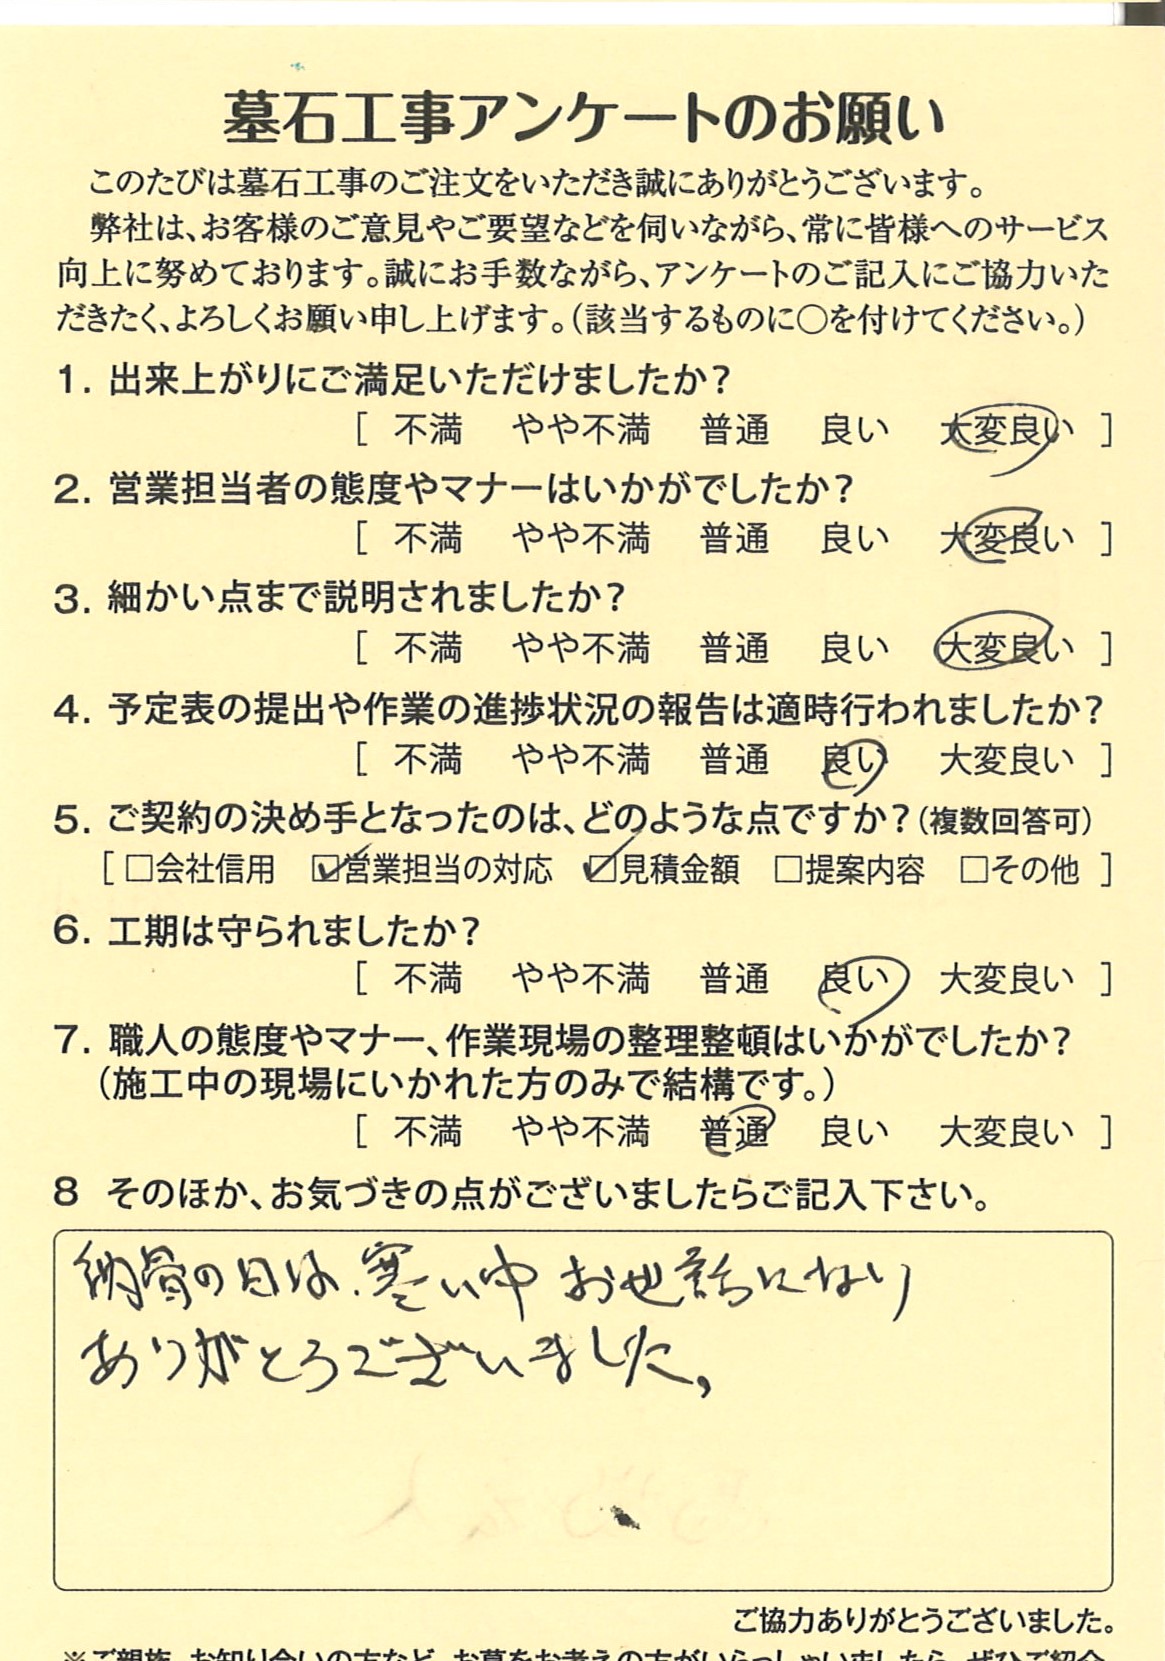 墓石工事アンケートのお願い
このたびは墓石工事のご注文をいただき誠にありがとうございます。
弊社は、お客様のご意見やご要望などを伺いながら、常に皆様へのサービス
向上に努めております。誠にお手数ながら、アンケートのご記入にご協力いた
だきたく、よろしくお願い申し上げます。（該当するものに○を付けてください。）
1. 出来上がりにご満足いただけましたか？
[ 不満 やや不満 普通 良い 大変良い ]
2. 営業担当者の態度やマナーはいかがでしたか？
[ 不満 やや不満 普通 良い 大変良い ]
3. 細かい点まで説明されましたか？
[ 不満 やや不満 普通 良い 大変良い ]
4. 予定表の提出や作業の進捗状況の報告は適時行われましたか？
[ 不満 やや不満 普通 良い 大変良い ]
5. ご契約の決め手となったのは、どのような点ですか？（複数回答可）
[ □会社信用 ☑営業担当の対応 ☑見積金額 □提案内容 □その他 ]
6. 工期は守られましたか？
[ 不満 やや不満 普通 良い 大変良い ]
7. 職人の態度やマナー、作業現場の整理整頓はいかがでしたか？
（施工中の現場にいかれた方のみで結構です。）
[ 不満 やや不満 普通 良い 大変良い ]
8 そのほか、お気づきの点がございましたらご記入下さい。
納骨の日は、寒い中 お世話になり
ありがとうございました。
ご協力ありがとうございました。
※ご親族、お知り合いの方など、お墓をお考えの方がいらっしゃいましたら、ぜひご紹介